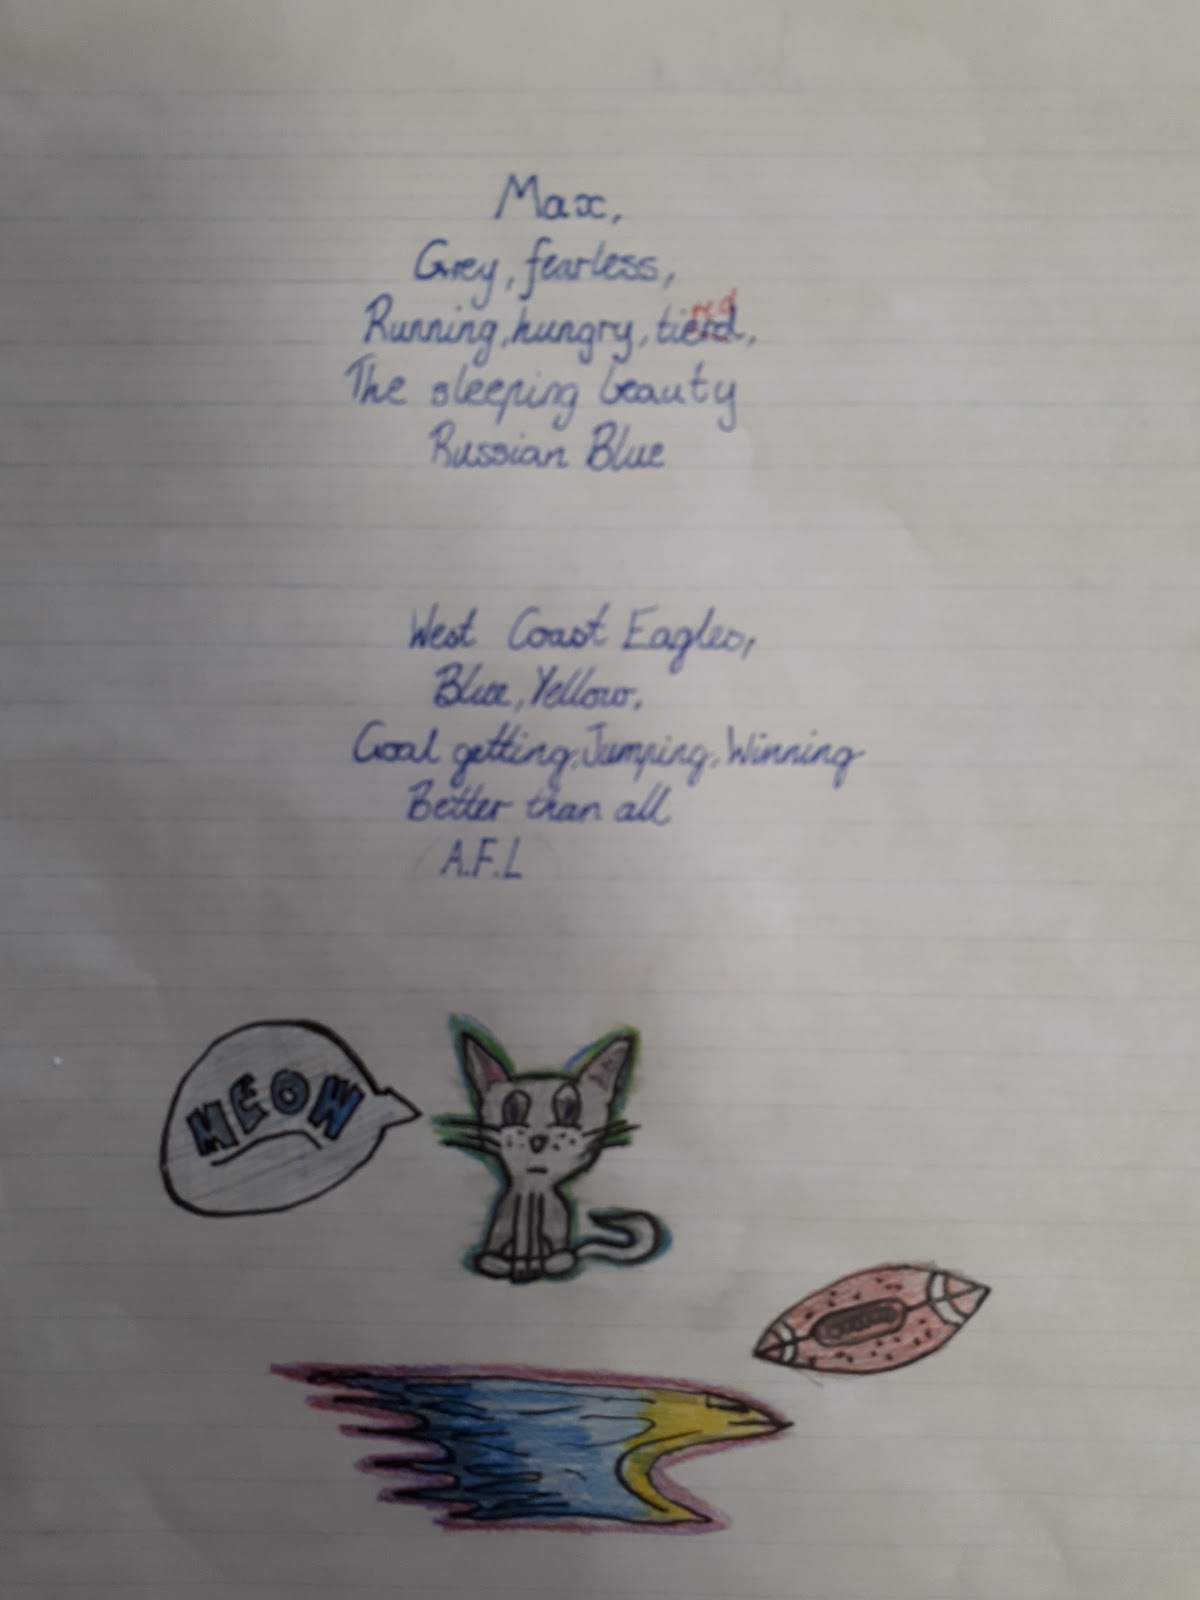 Max,
Grey, fearless,
red
Running, hungry, tierd,
The sleeping beauty
Russian Blue
West Coast Eagles,
Blue, Yellow,
Goal getting, Jumping, Winning
Better than all
A.F.L
MEOW